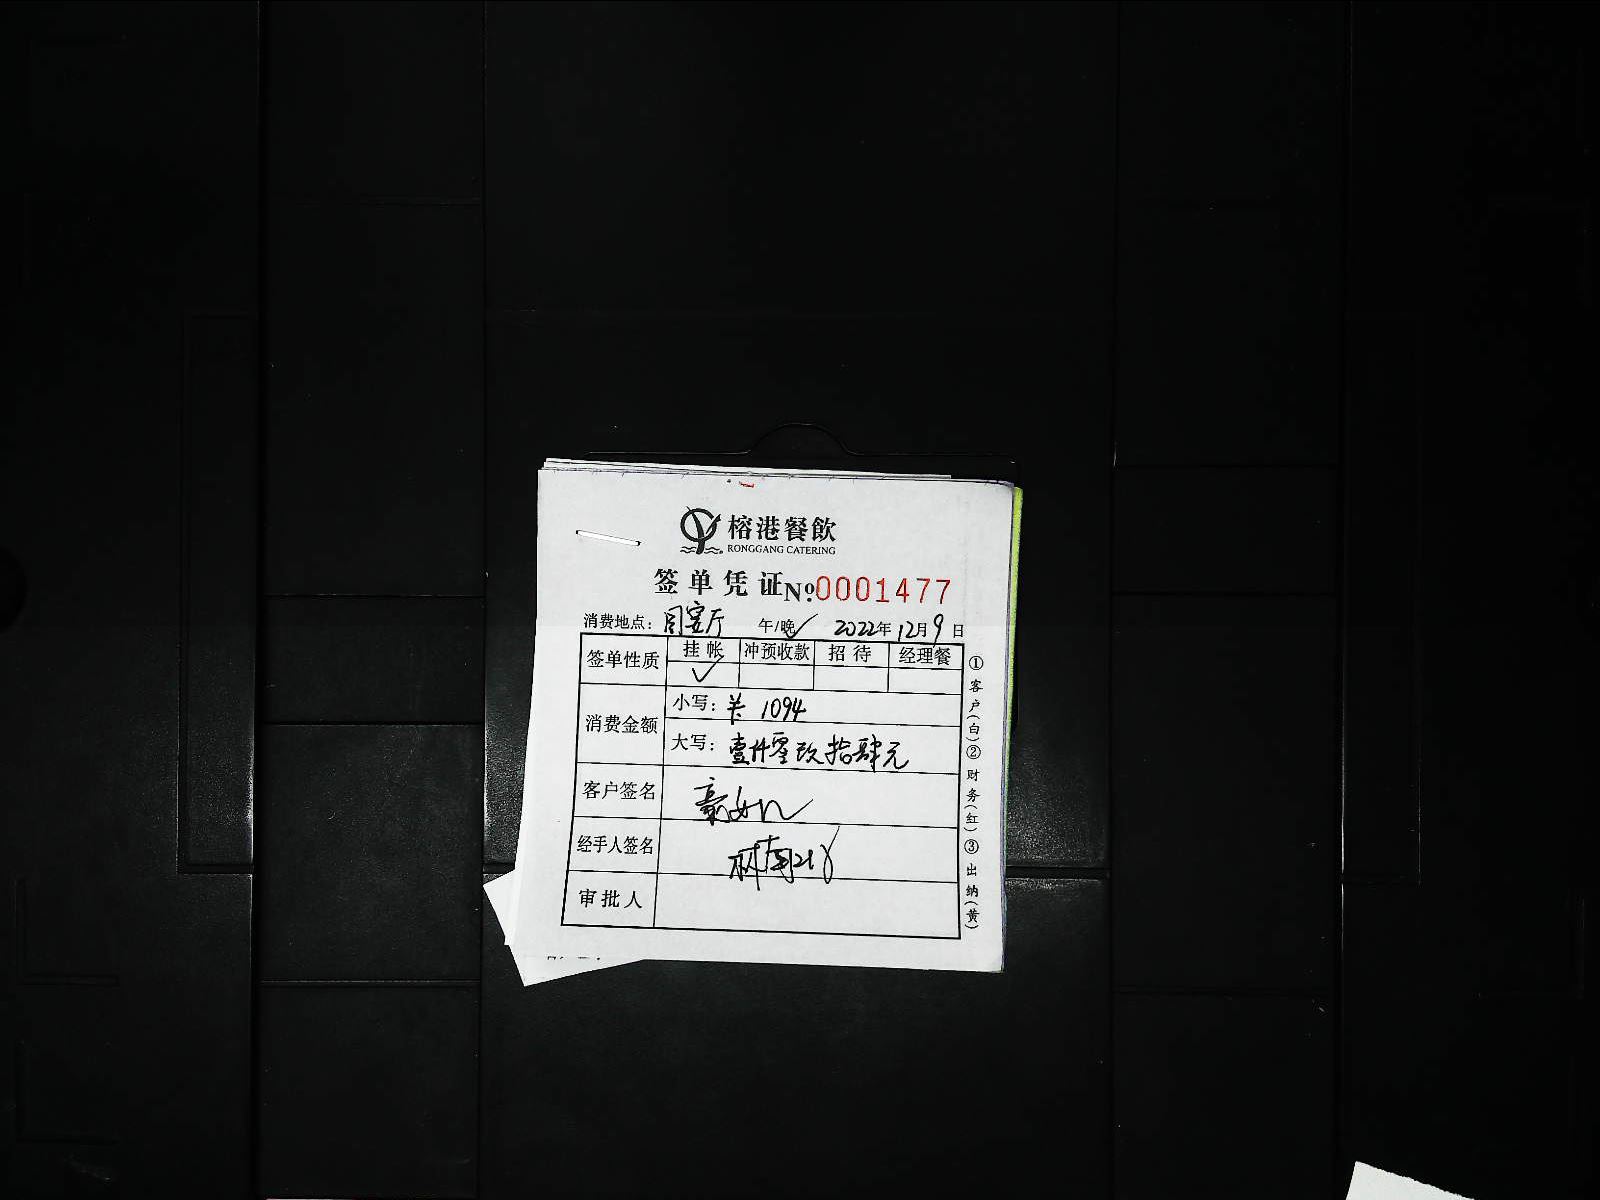 榕港餐飲
RONGGANG CATERING
签单凭证 №0001477
消费地点： 宴厅 午/晚✓ 2022年12月9日
签单性质 挂帐 冲预收款 招待 经理餐
✓
消费金额 小写： 1094
大写：壹仟零玖拾肆元
客户签名
经手人签名
审批人
①客户(白)②财务(红)③出纳(黄)